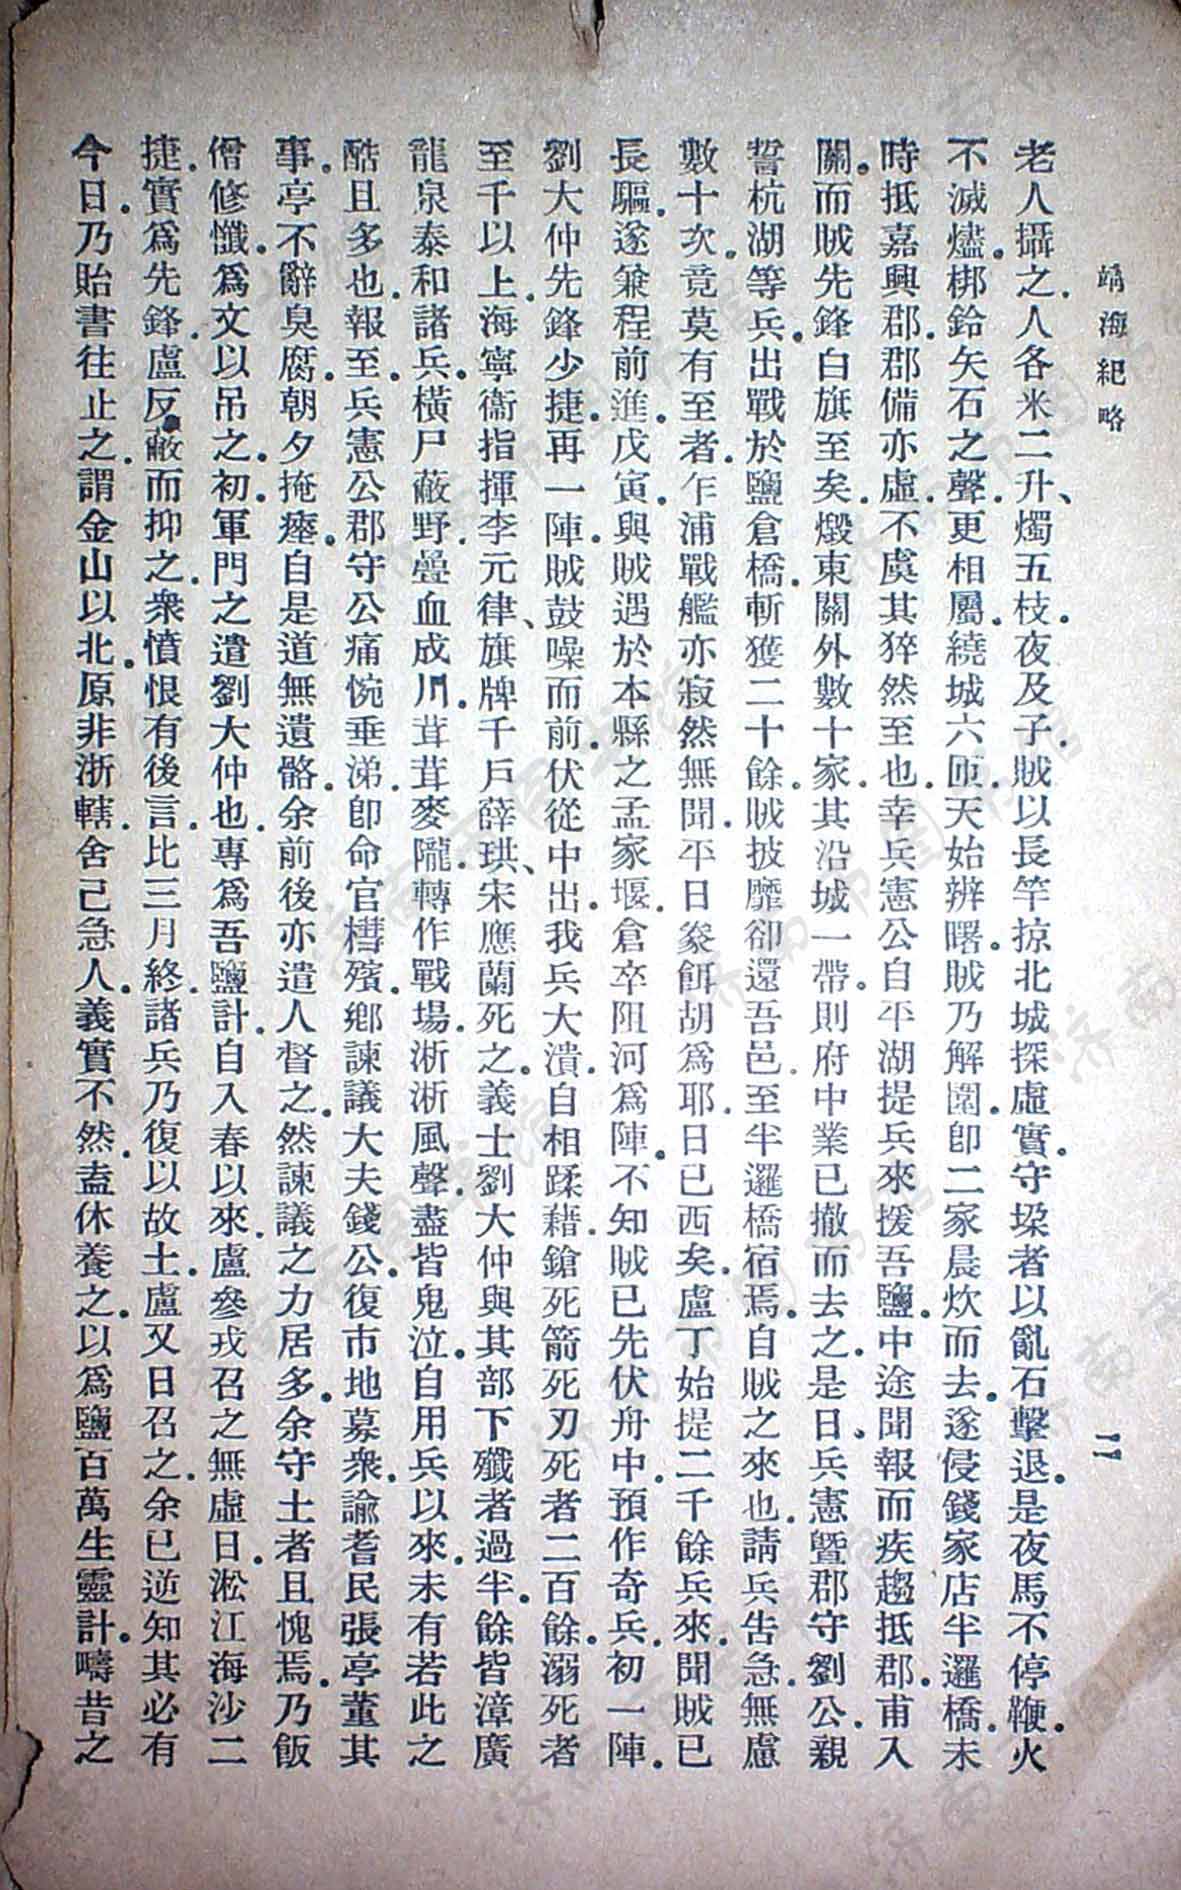 靖海紀略
二
老人攝之.人各米二升、燭五枝.夜及子.賊以長竿掠北城探虛實.守垜者以亂石擊退.是夜馬不停鞭.火
不滅燼.梆鈴矢石之聲.更相屬.繞城六匝.天始辨曙.賊乃解圍.卽二家晨炊而去.遂侵錢家店半邏橋.未
時抵嘉興郡.郡備亦虛.不虞其猝然至也.幸兵憲公自平湖提兵來援吾鹽.中途聞報而疾趨抵郡.甫入
關.而賊先鋒白旗至矣.燬東關外數十家.其沿城一帶.則府中業已撤而去之.是日.兵憲曁郡守劉公.親
誓杭湖等兵.出戰於鹽倉橋.斬獲二十餘.賊披靡卻還吾邑.至半邏橋宿焉.自賊之來也.請兵告急.無慮
數十次.竟莫有至者.乍浦戰艦亦寂然無聞.平日豢餌胡爲耶.日已西矣.盧丁始提二千餘兵來.聞賊已
長驅.遂兼程前進.戊寅.與賊遇於本縣之孟家堰.倉卒阻河爲陣.不知賊已先伏舟中.預作奇兵.初一陣.
劉大仲先鋒少捷.再一陣.賊鼓噪而前.伏從中出.我兵大潰.自相蹂藉.鎗死箭死刃死者二百餘.溺死者
至千以上.海寧衞指揮李元律、旗牌千戶薛珙、宋應蘭死之.義士劉大仲與其部下殲者過半.餘皆漳廣
龍泉泰和諸兵.橫尸蔽野.疊血成川.茸茸麥隴.轉作戰場.淅淅風聲.盡皆鬼泣.自用兵以來.未有若此之
酷且多也.報至.兵憲公郡守公痛惋垂涕.卽命官槥殯.鄕諫議大夫錢公.復市地募衆.諭耆民張亭董其
事.亭不辭臭腐.朝夕掩瘞.自是道無遺骼.余前後亦遣人督之.然諫議之力居多.余守土者且愧焉.乃飯
僧修懺.爲文以吊之.初.軍門之遣劉大仲也.專爲吾鹽計.自入春以來.盧參戎召之無虛日.淞江海沙二
捷.實爲先鋒.盧反蔽而抑之.衆憤恨有後言.比三月終.諸兵乃復以故土.盧又日召之.余已逆知其必有
今日.乃貽書往止之.謂金山以北.原非浙轄.舍己急人.義實不然.盍休養之.以爲鹽百萬生靈計.疇昔之